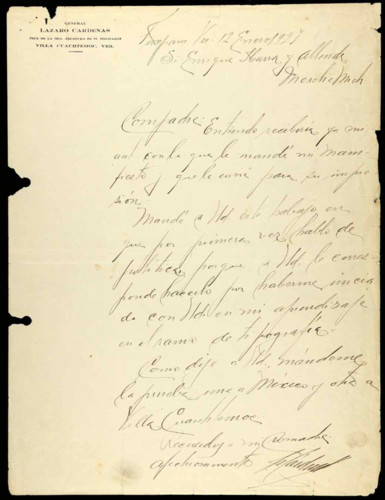 GENERAL
LAZARO CARDENAS
JEFE DE LA
VILLA CUAUHTEMOC, VER.
12 Enero
Sr. Enrique Ibarra y Allende
Mich
Compadre: Entiendo recibiría ya mi
con la que le mandé mi Mani-
fiesto y que le envié para su impre-
sión.
Mandé a Ud. este trabajo en
que por primera vez hablo de
política, porque a Ud. le corres-
ponde hacerlo por haberme inicia-
do con Ud. en mi aprendizaje
en el ramo de tipografía.
Como dije a Ud. mándeme
la prueba una a México y otra a
Villa Cuauhtemoc
Recuerdos a mi Comadre
afectuosamente